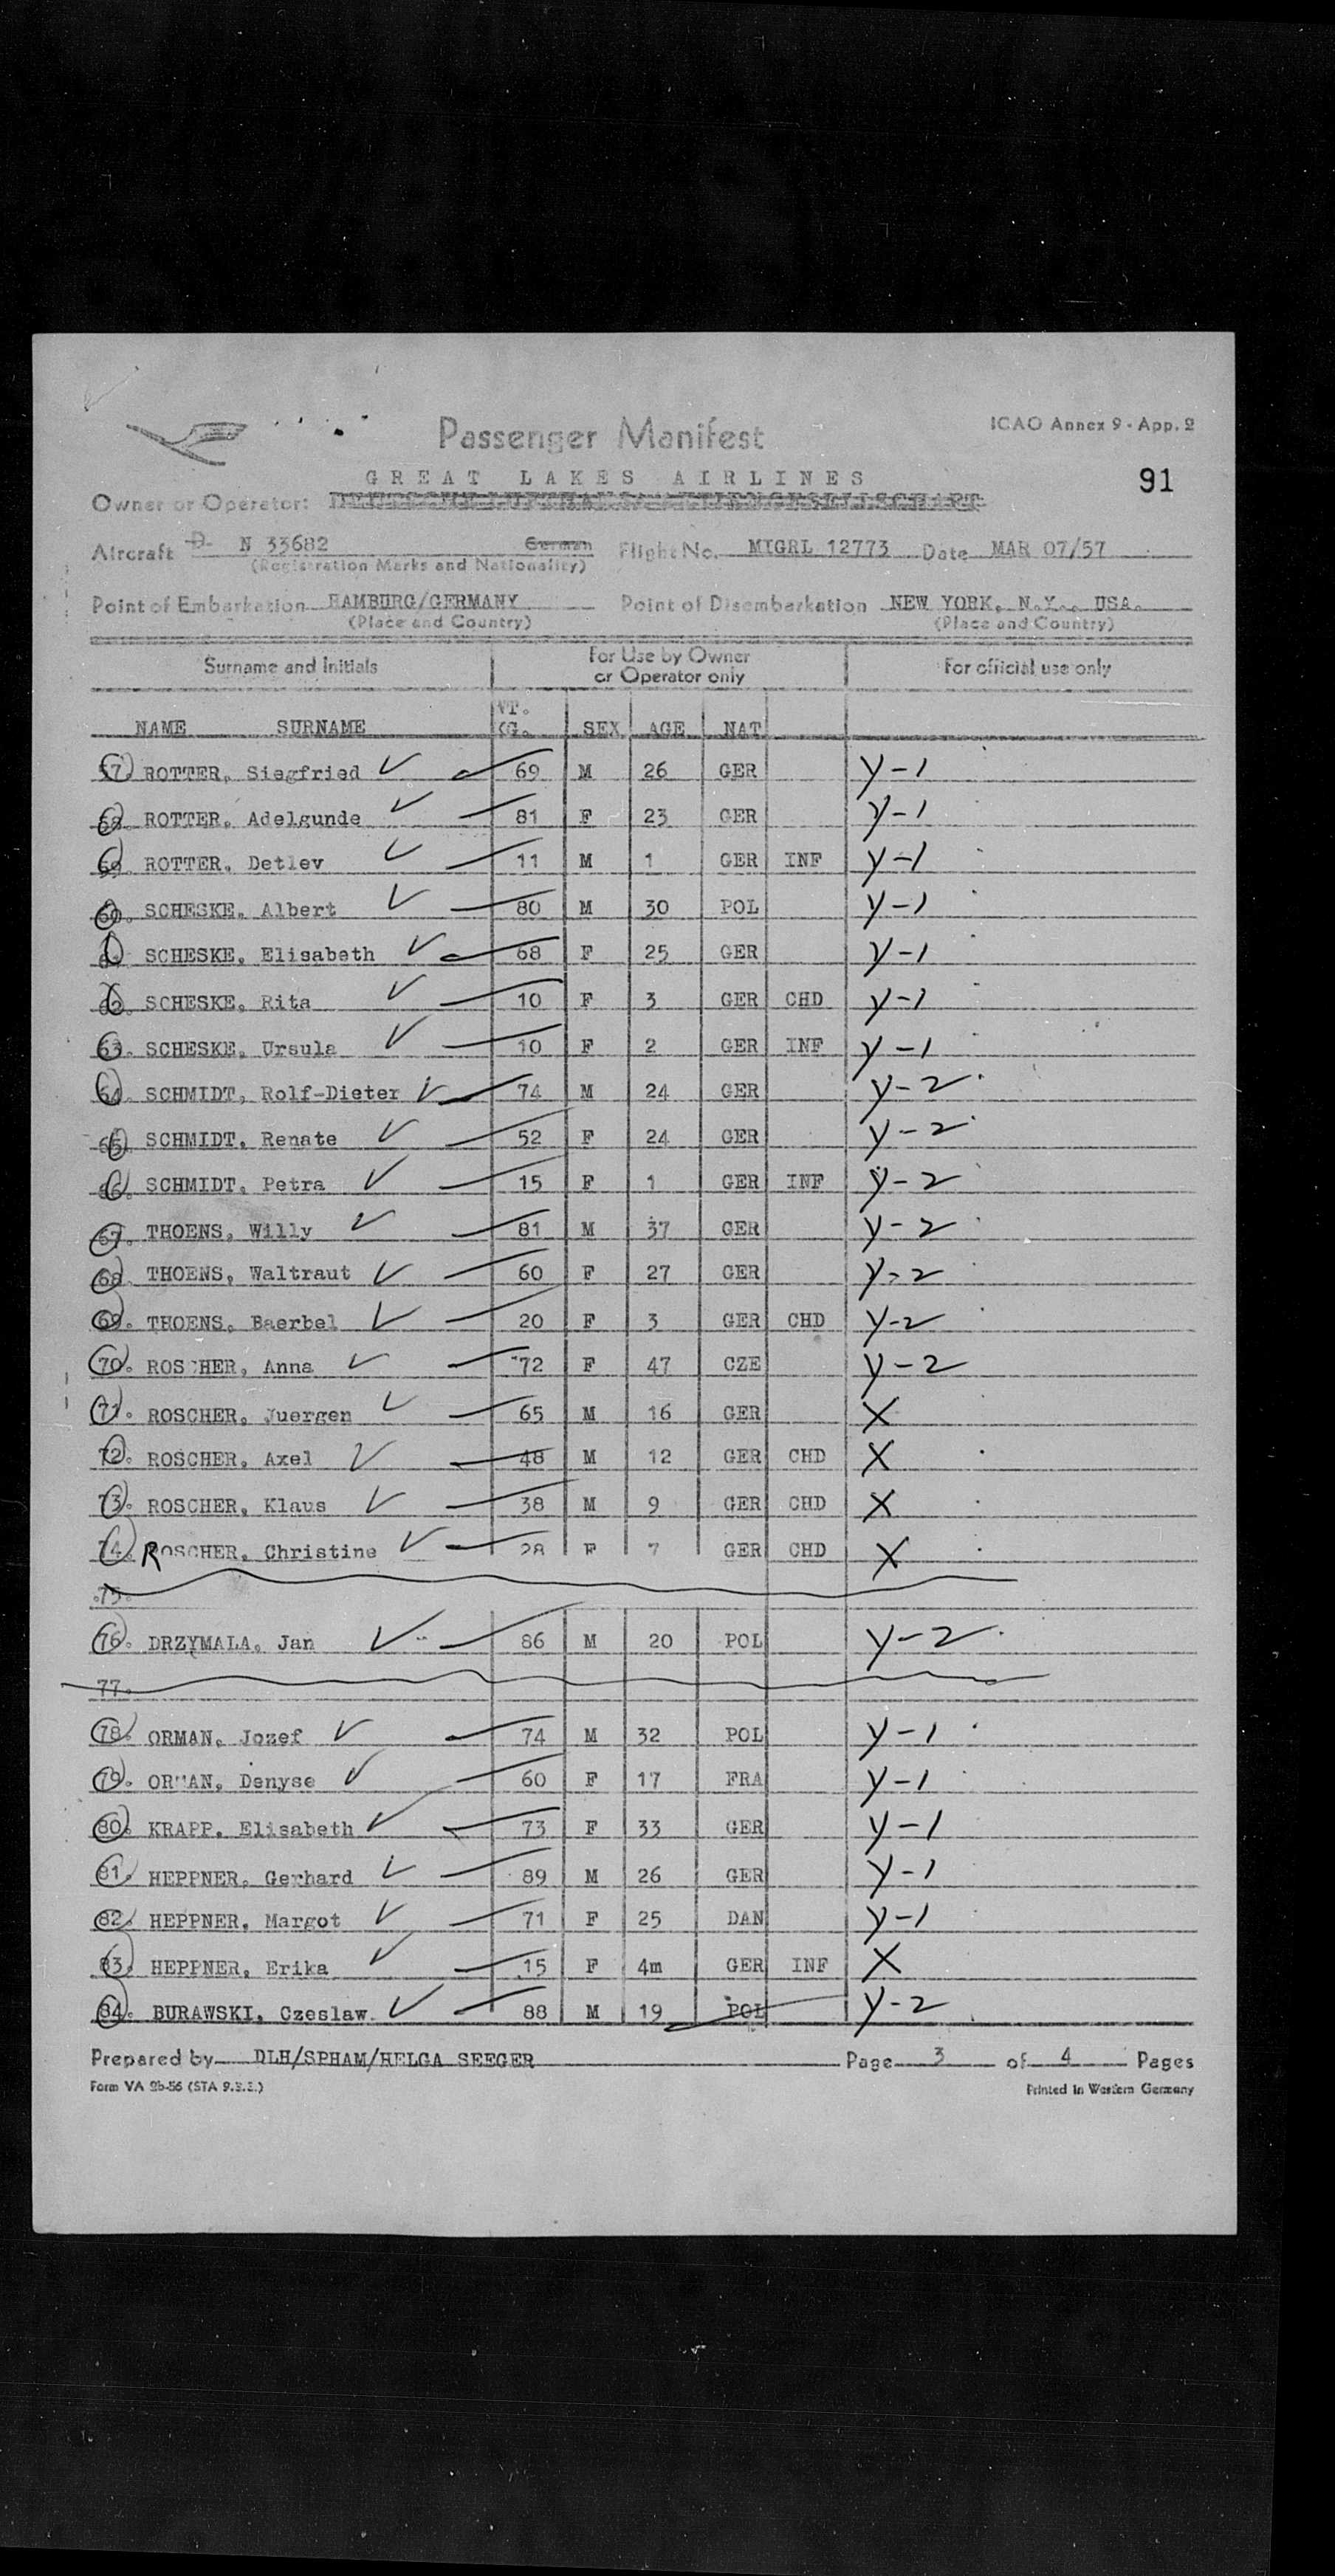 Passenger Manifest
ICAO Annex 9 - App. 2
GREAT LAKES AIRLINES
91
Owner or Operator:
Aircraft D- N 33682 German Flight No. MIGRL 12773 Date MAR 07/57
(Registration Marks and Nationality)
Point of Embarkation HAMBURG/GERMANY Point of Disembarkation NEW YORK, N.Y., USA.
(Place and Country) (Place and Country)
Surname and Initials For Use by Owner or Operator only For official use only
NAME SURNAME WT. KG. SEX AGE NAT
57. ROTTER, Siegfried ✓ 69 M 26 GER Y-1
58. ROTTER, Adelgunde ✓ 81 F 23 GER Y-1
59. ROTTER, Detlev ✓ 11 M 1 GER INF Y-1
60. SCHESKE, Albert ✓ 80 M 30 POL Y-1
61. SCHESKE, Elisabeth ✓ 68 F 25 GER Y-1
62. SCHESKE, Rita ✓ 10 F 3 GER CHD Y-1
63. SCHESKE, Ursula ✓ 10 F 2 GER INF Y-1
64. SCHMIDT, Rolf-Dieter ✓ 74 M 24 GER Y-2
65. SCHMIDT, Renate ✓ 52 F 24 GER Y-2
66. SCHMIDT, Petra ✓ 15 F 1 GER INF Y-2
67. THOENS, Willy ✓ 81 M 37 GER Y-2
68. THOENS, Waltraut ✓ 60 F 27 GER Y-2
69. THOENS, Baerbel ✓ 20 F 3 GER CHD Y-2
70. ROSCHER, Anna ✓ 72 F 47 CZE Y-2
71. ROSCHER, Juergen ✓ 65 M 16 GER X
72. ROSCHER, Axel ✓ 48 M 12 GER CHD X
73. ROSCHER, Klaus ✓ 38 M 9 GER CHD X
74. ROSCHER, Christine ✓ 28 F 7 GER CHD X
75.
76. DRZYMALA, Jan ✓ 86 M 20 POL Y-2
77.
78. ORMAN, Jozef ✓ 74 M 32 POL Y-1
79. ORMAN, Denyse ✓ 60 F 17 FRA Y-1
80. KRAPP, Elisabeth ✓ 73 F 33 GER Y-1
81. HEPPNER, Gerhard ✓ 89 M 26 GER Y-1
82. HEPPNER, Margot ✓ 71 F 25 DAN Y-1
83. HEPPNER, Erika ✓ 15 F 4m GER INF X
84. BURAWSKI, Czeslaw. ✓ 88 M 19 POL Y-2
Prepared by DLH/SPHAM/HELGA SEEGER Page 3 of 4 Pages
Form VA 9b-56 Printed in Western Germany